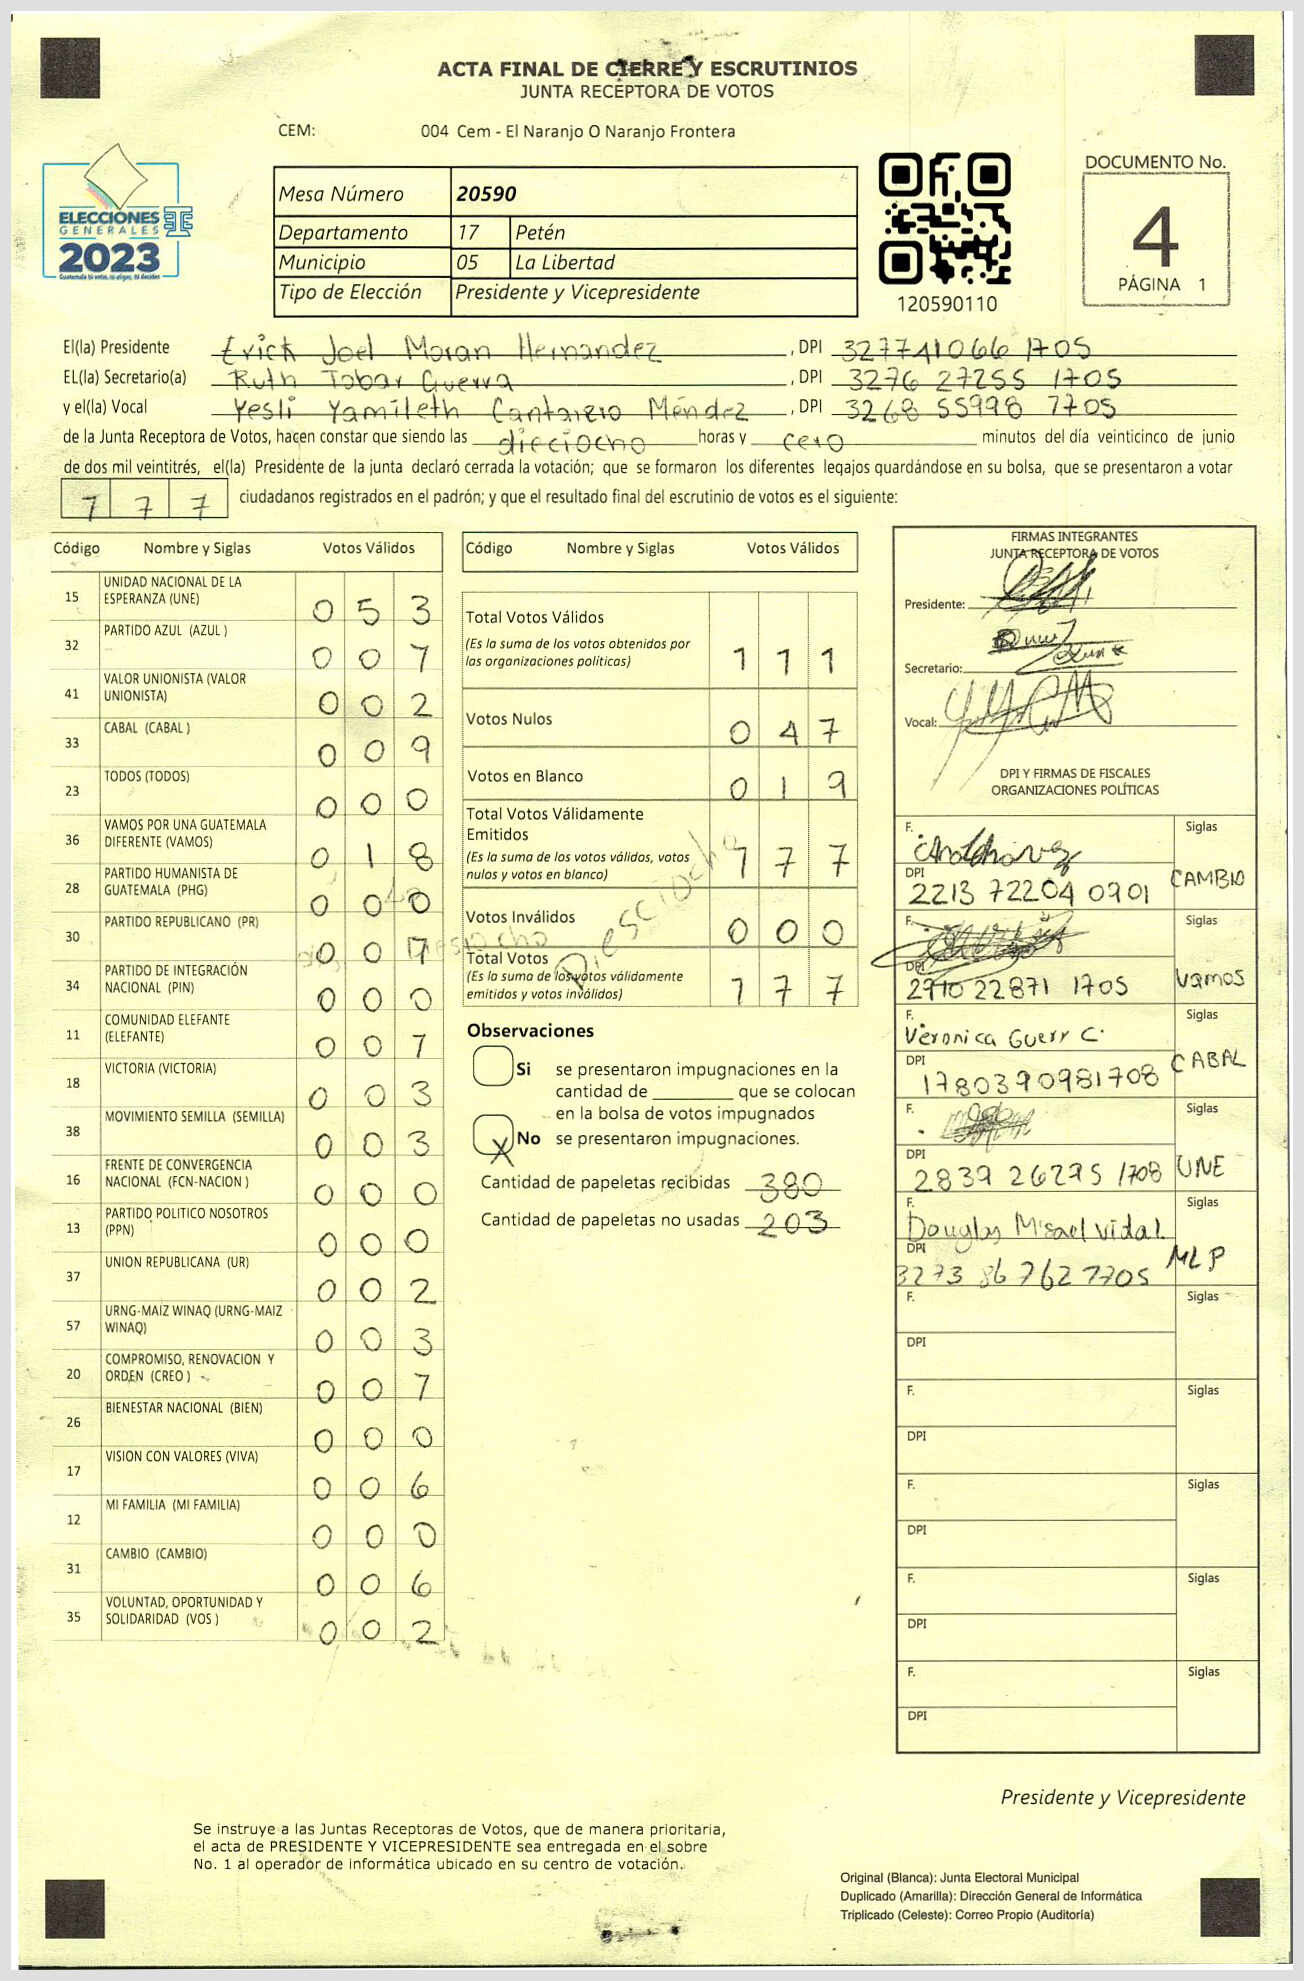 ACTA FINAL DE CIERRE Y ESCRUTINIOS
JUNTA RECEPTORA DE VOTOS
CEM: 004 Cem - El Naranjo O Naranjo Frontera
ELECCIONES
GENERALES
2023
Mesa Número 20590
Departamento 17 Petén
Municipio 05 La Libertad
Tipo de Elección Presidente y Vicepresidente
120590110
DOCUMENTO No.
4
PÁGINA 1
El(la) Presidente Erick Joel Moran Hernandez , DPI 327741066 1705
EL(la) Secretario(a) Ruth Tobar Guerra , DPI 3276 27255 1705
y el(la) Vocal Yesli Yamileth Cantarero Méndez , DPI 3268 55998 1705
de la Junta Receptora de Votos, hacen constar que siendo las dieciocho horas y cero minutos del día veinticinco de junio
de dos mil veintitrés, el(la) Presidente de la junta declaró cerrada la votación; que se formaron los diferentes legajos quardándose en su bolsa, que se presentaron a votar
1 7 7 ciudadanos registrados en el padrón; y que el resultado final del escrutinio de votos es el siguiente:
Código Nombre y Siglas Votos Válidos
15 UNIDAD NACIONAL DE LA
ESPERANZA (UNE) 0 5 3
32 PARTIDO AZUL (AZUL ) 0 0 1
41 VALOR UNIONISTA (VALOR
UNIONISTA) 0 0 2
33 CABAL (CABAL ) 0 0 9
23 TODOS (TODOS) 0 0 0
36 VAMOS POR UNA GUATEMALA
DIFERENTE (VAMOS) 0 1 8
28 PARTIDO HUMANISTA DE
GUATEMALA (PHG) 0 0 0
30 PARTIDO REPUBLICANO (PR) 0 0 1
34 PARTIDO DE INTEGRACIÓN
NACIONAL (PIN) 0 0 0
11 COMUNIDAD ELEFANTE
(ELEFANTE) 0 0 1
18 VICTORIA (VICTORIA) 0 0 3
38 MOVIMIENTO SEMILLA (SEMILLA) 0 0 3
16 FRENTE DE CONVERGENCIA
NACIONAL (FCN-NACION ) 0 0 0
13 PARTIDO POLITICO NOSOTROS
(PPN) 0 0 0
37 UNION REPUBLICANA (UR) 0 0 2
57 URNG-MAIZ WINAQ (URNG-MAIZ
WINAQ) 0 0 3
20 COMPROMISO, RENOVACION Y
ORDEN (CREO ) 0 0 1
26 BIENESTAR NACIONAL (BIEN) 0 0 0
17 VISION CON VALORES (VIVA) 0 0 6
12 MI FAMILIA (MI FAMILIA) 0 0 0
31 CAMBIO (CAMBIO) 0 0 6
35 VOLUNTAD, OPORTUNIDAD Y
SOLIDARIDAD (VOS ) 0 0 2
Código Nombre y Siglas Votos Válidos
Total Votos Válidos
(Es la suma de los votos obtenidos por
las organizaciones políticas) 1 1 1
Votos Nulos 0 4 7
Votos en Blanco 0 1 9
Total Votos Válidamente
Emitidos
(Es la suma de los votos válidos, votos
nulos y votos en blanco) 1 7 7
Votos Inválidos 0 0 0
Total Votos
(Es la suma de los votos válidamente
emitidos y votos inválidos) 1 7 7
Diesciocho
Observaciones
Si se presentaron impugnaciones en la
cantidad de ________ que se colocan
en la bolsa de votos impugnados
X No se presentaron impugnaciones.
Cantidad de papeletas recibidas 380
Cantidad de papeletas no usadas 203
FIRMAS INTEGRANTES
JUNTA RECEPTORA DE VOTOS
Presidente:
Secretario:
Vocal:
DPI Y FIRMAS DE FISCALES
ORGANIZACIONES POLÍTICAS
F. Siglas
DPI 2213 72204 0901 CAMBIO
F. Siglas
DPI 2910 22871 1705 Vamos
F. Veronica Guerr C. Siglas
DPI 1780390981708 CABAL
F. Siglas
DPI 2839 26295 1708 UNE
F. Douglas Misael Vidal Siglas
DPI 3273 86762 1705 MLP
F. Siglas
DPI
F. Siglas
DPI
F. Siglas
DPI
F. Siglas
DPI
F. Siglas
DPI
Presidente y Vicepresidente
Se instruye a las Juntas Receptoras de Votos, que de manera prioritaria,
el acta de PRESIDENTE Y VICEPRESIDENTE sea entregada en el sobre
No. 1 al operador de informática ubicado en su centro de votación.
Original (Blanca): Junta Electoral Municipal
Duplicado (Amarilla): Dirección General de Informática
Triplicado (Celeste): Correo Propio (Auditoría)